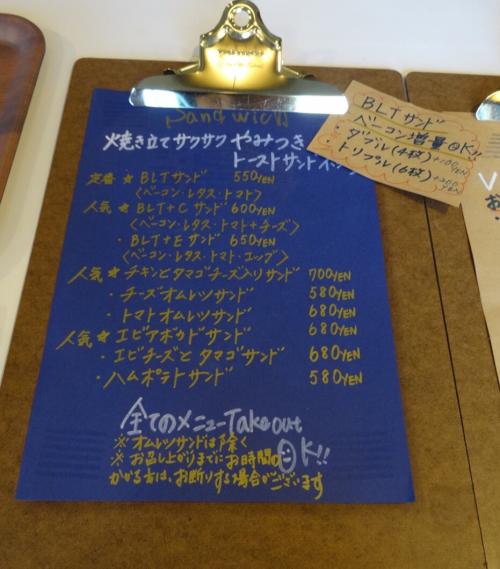 Sandwich
焼き立てサクサク やみつき
トーストサンドイッチ
定番 ★ BLTサンド 550YEN
〈ベーコン・レタス・トマト〉
人気 ★ BLT+Cサンド 600YEN
〈ベーコン・レタス・トマト+チーズ〉
・BLT+Eサンド 650YEN
〈ベーコン・レタス・トマト・エッグ〉
人気 ★ チキンとタマゴチーズ入りサンド 700YEN
・チーズオムレツサンド 580YEN
・トマトオムレツサンド 680YEN
人気 ★ エビアボカドサンド 680YEN
・エビチーズとタマゴサンド 680YEN
・ハムポテトサンド 580YEN
全てのメニューTake out
OK!!
※オムレツサンドは除く
※お召し上がりまでにお時間の
かかる方は、お断りする場合がございます
BLTサンド
ベーコン増量OK!!
・ダブル(4枚)+100YEN
・トリプル(6枚)+200YEN